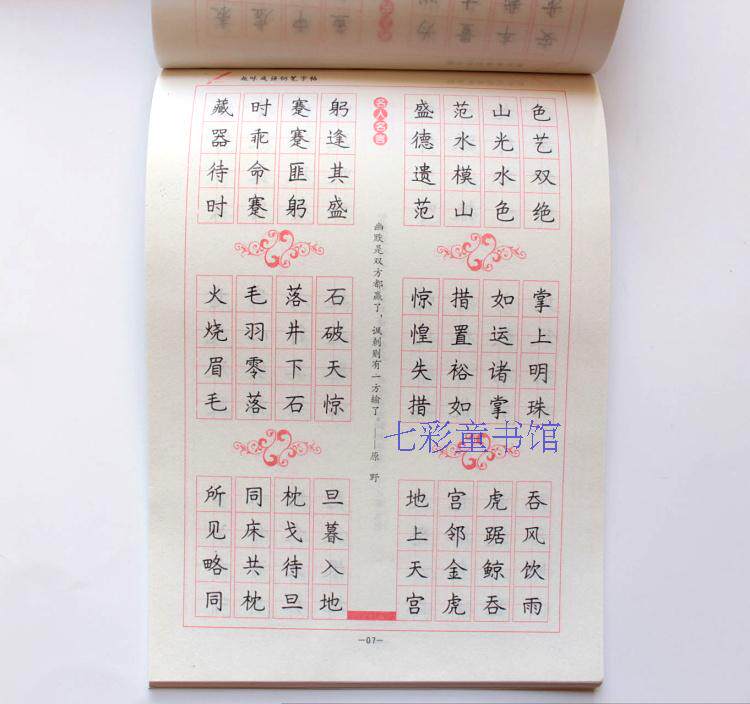 趣味成语钢笔字帖
藏器待时
时乖命蹇
蹇蹇匪躬
躬逢其盛
盛德遗范
范水模山
山光水色
色艺双绝
火烧眉毛
毛羽零落
落井下石
石破天惊
惊惶失措
措置裕如
如运诸掌
掌上明珠
所见略同
同床共枕
枕戈待旦
旦暮入地
地上天宫
宫邻金虎
虎踞鲸吞
吞风饮雨
名人名言
幽默是双方都赢了，讽刺则有一方输了。——原 野
七彩童书馆
—07—